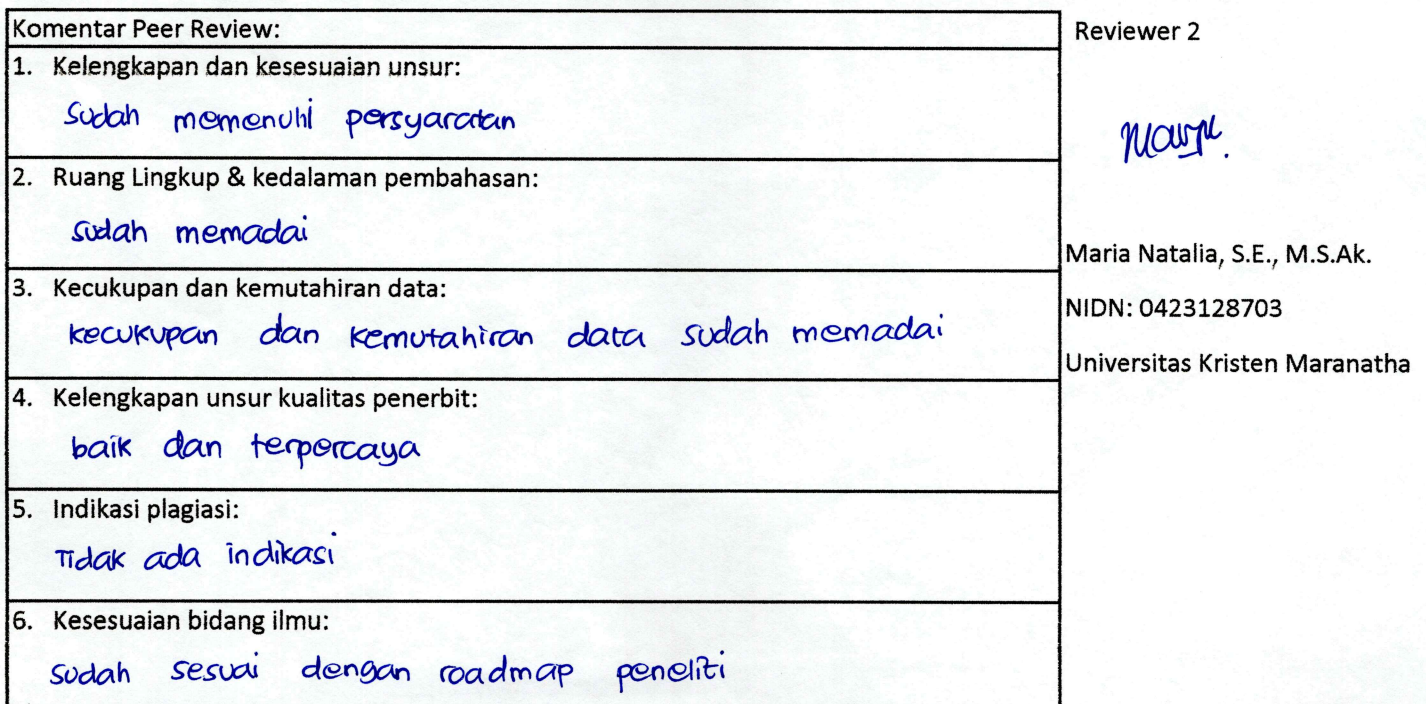 Komentar Peer Review:
1. Kelengkapan dan kesesuaian unsur:
Sudah memenuhi persyaratan
2. Ruang Lingkup & kedalaman pembahasan:
sudah memadai
3. Kecukupan dan kemutahiran data:
kecukupan dan kemutahiran data sudah memadai
4. Kelengkapan unsur kualitas penerbit:
baik dan terpercaya
5. Indikasi plagiasi:
Tidak ada indikasi
6. Kesesuaian bidang ilmu:
sudah sesuai dengan roadmap peneliti
Reviewer 2
Maria Natalia, S.E., M.S.Ak.
NIDN: 0423128703
Universitas Kristen Maranatha